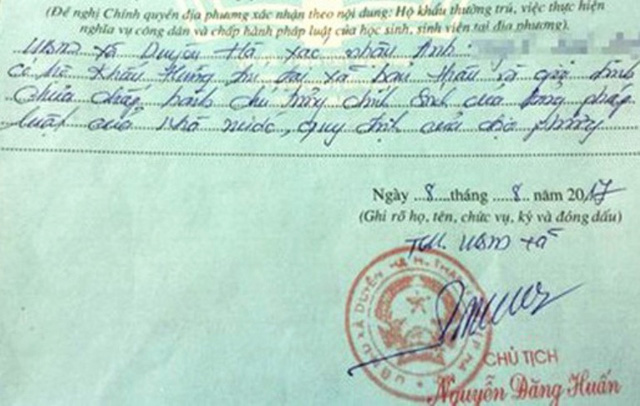 (Đề nghị Chính quyền địa phương xác nhận theo nội dung: Hộ khẩu thường trú, việc thực hiện
nghĩa vụ công dân và chấp hành pháp luật của học sinh, sinh viên tại địa phương)
UBND xã Duyên Hà xác nhận anh:
có hộ khẩu thường trú tại xã bản thân và gia đình
chưa chấp hành chủ trương chính sách của đảng pháp
luật của nhà nước, quy định của địa phương
Ngày 8 tháng 8 năm 2017
(Ghi rõ họ, tên, chức vụ, ký và đóng dấu)
TM. UBND xã
U.B.N.D XÃ DUYÊN HÀ H. THANH
CHỦ TỊCH
Nguyễn Đăng Huấn